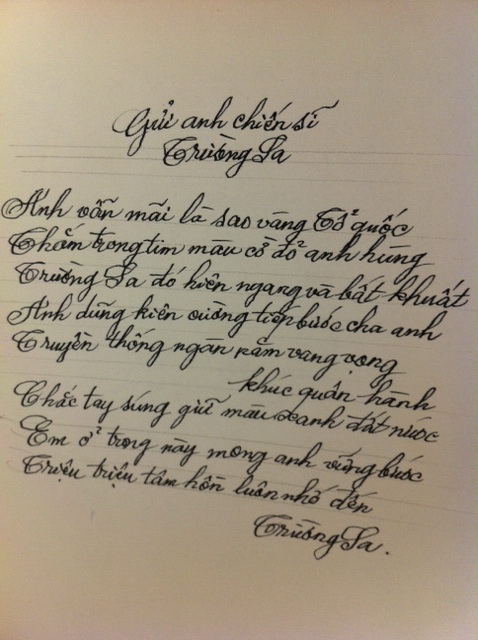 Gửi anh chiến sĩ
Trường Sa
Anh vẫn mãi là sao vàng Tổ quốc
Thắm trong tim màu cờ đỏ anh hùng
Trường Sa đó hiên ngang và bất khuất
Anh dũng kiên cường tiếp bước cha anh
Truyền thống ngàn năm vang vọng
khúc quân hành
Chắc tay súng giữ màu xanh đất nước
Em ở trong này mong anh vững bước
Triệu triệu tâm hồn luôn nhớ đến
Trường Sa.